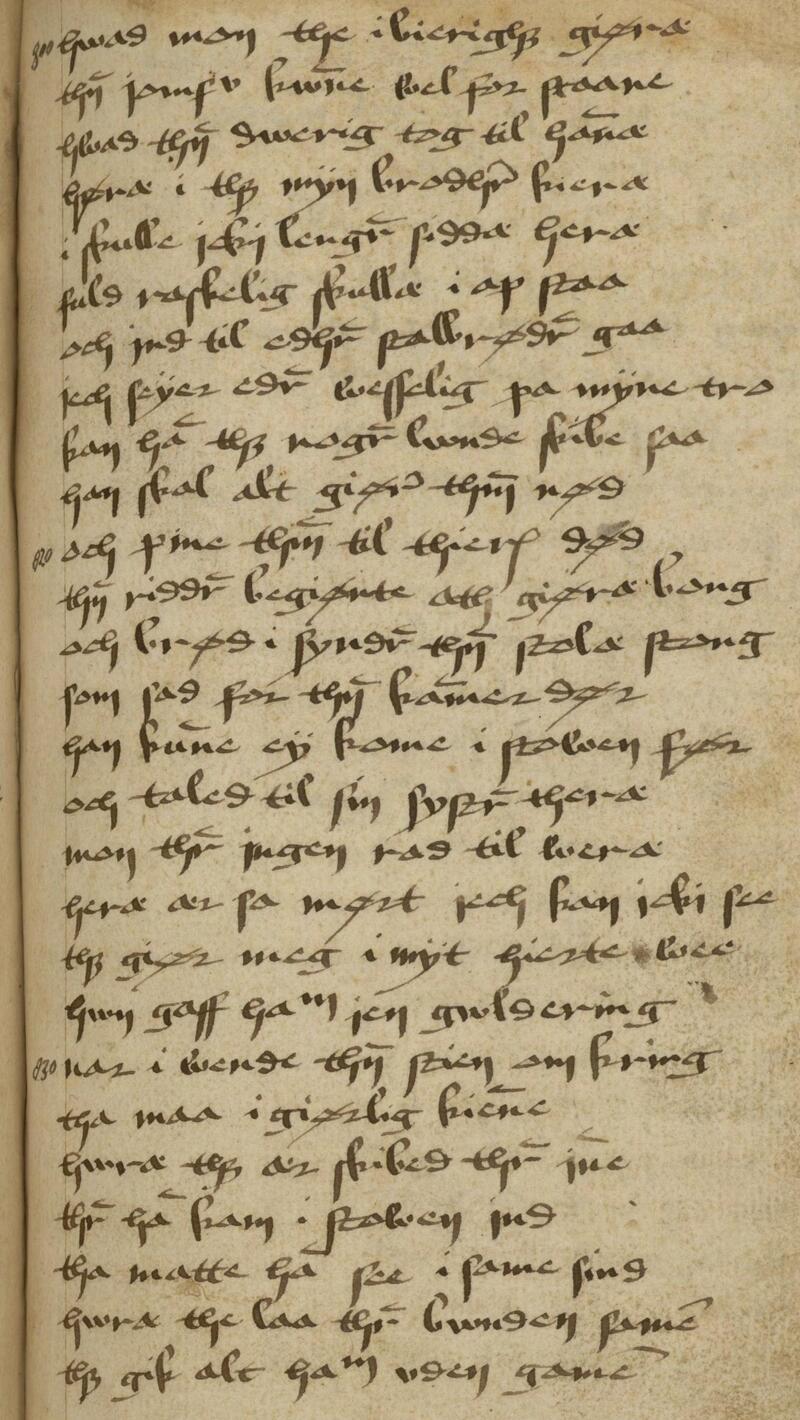 810 hwad mon the i bierighꝫ giøræ
thn̄ jomfv kwn̄e wel for staane
hwad thn̄ dwerig tog til han̄æ
høræ i thꝫ mijn brodhr̄ kieræ
i skulle jckj lengr̄ siddæ heræ
fuld raskelig skullæ i op staa
och ind til edhr̄ stalbrødr̄ gaa
jech seyer edr̄ wesselig pa mijne tro
kan hā thꝫ nogr̄ lwnde skibe saa
han skal alt giør̄ thm̄ nød
820 och pine thm̄ til thierꝭ død
thn̄ riddr̄ begiørte ath giøræ bong
och brød i syndr̄ thn̄ stolæ stong
som sad for thn̄ kam̄er dør
han kun̄e ey kome i stowen før
och taled til sin systr̄ theræ
mon thr̄ jngen rad til weræ
heræ ær sa mørt jech kan jckj see
thꝫ giør meg i mijt hierte wee
hwn gaff haᵐ jen gwldering
830 nar i wende thn̄ stien om kring
tha maa i giørlig kien̄e
hwræ thꝫ ær skibed thr̄ jn̄e
thr̄ hā kam i stowen jnd
tha matte hā see i same sind
hwræ the laa thr̄ bwnden samē
thꝫ gik alt haᵐ vden gamē